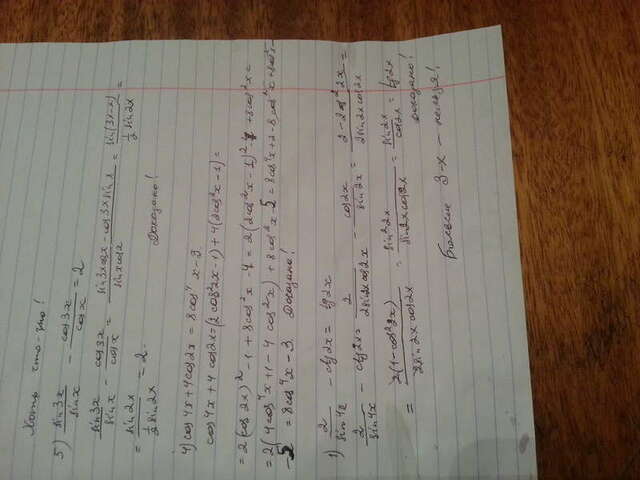 Хоть что-то!
5) sin3x/sinx - cos3x/cosx = 2
sin3x/sinx - cos3x/cosx = (sin3xcosx - cos3x sinx)/(sinxcosx) = sin(3x-x)/(1/2 sin2x) =
= sin2x/(1/2 sin2x) = 2. Доказано!
4) cos4x+4cos2x = 8cos⁴x-3.
cos4x+4cos2x=(2cos²2x-1)+4(2cos²x-1)=
=2(cos2x)²-1+8cos²x-4=2(2cos²x-1)²-5+8cos²x=
=2(4cos⁴x+1-4cos²x)+8cos²x-5=8cos⁴x+2-8cos²x+8cos²x-
-5=8cos⁴x-3. Доказано!
1) 2/sin4x - ctg2x = tg2x
2/sin4x - ctg2x = 2/(2sin2xcos2x) - cos2x/sin2x = (2-2cos²2x)/(2sin2xcos2x) =
= 2(1-cos²2x)/(2sin2xcos2x) = sin²2x/(sin2xcos2x) = sin2x/cos2x = tg2x
доказано!
Больше 3-х - нельзя!